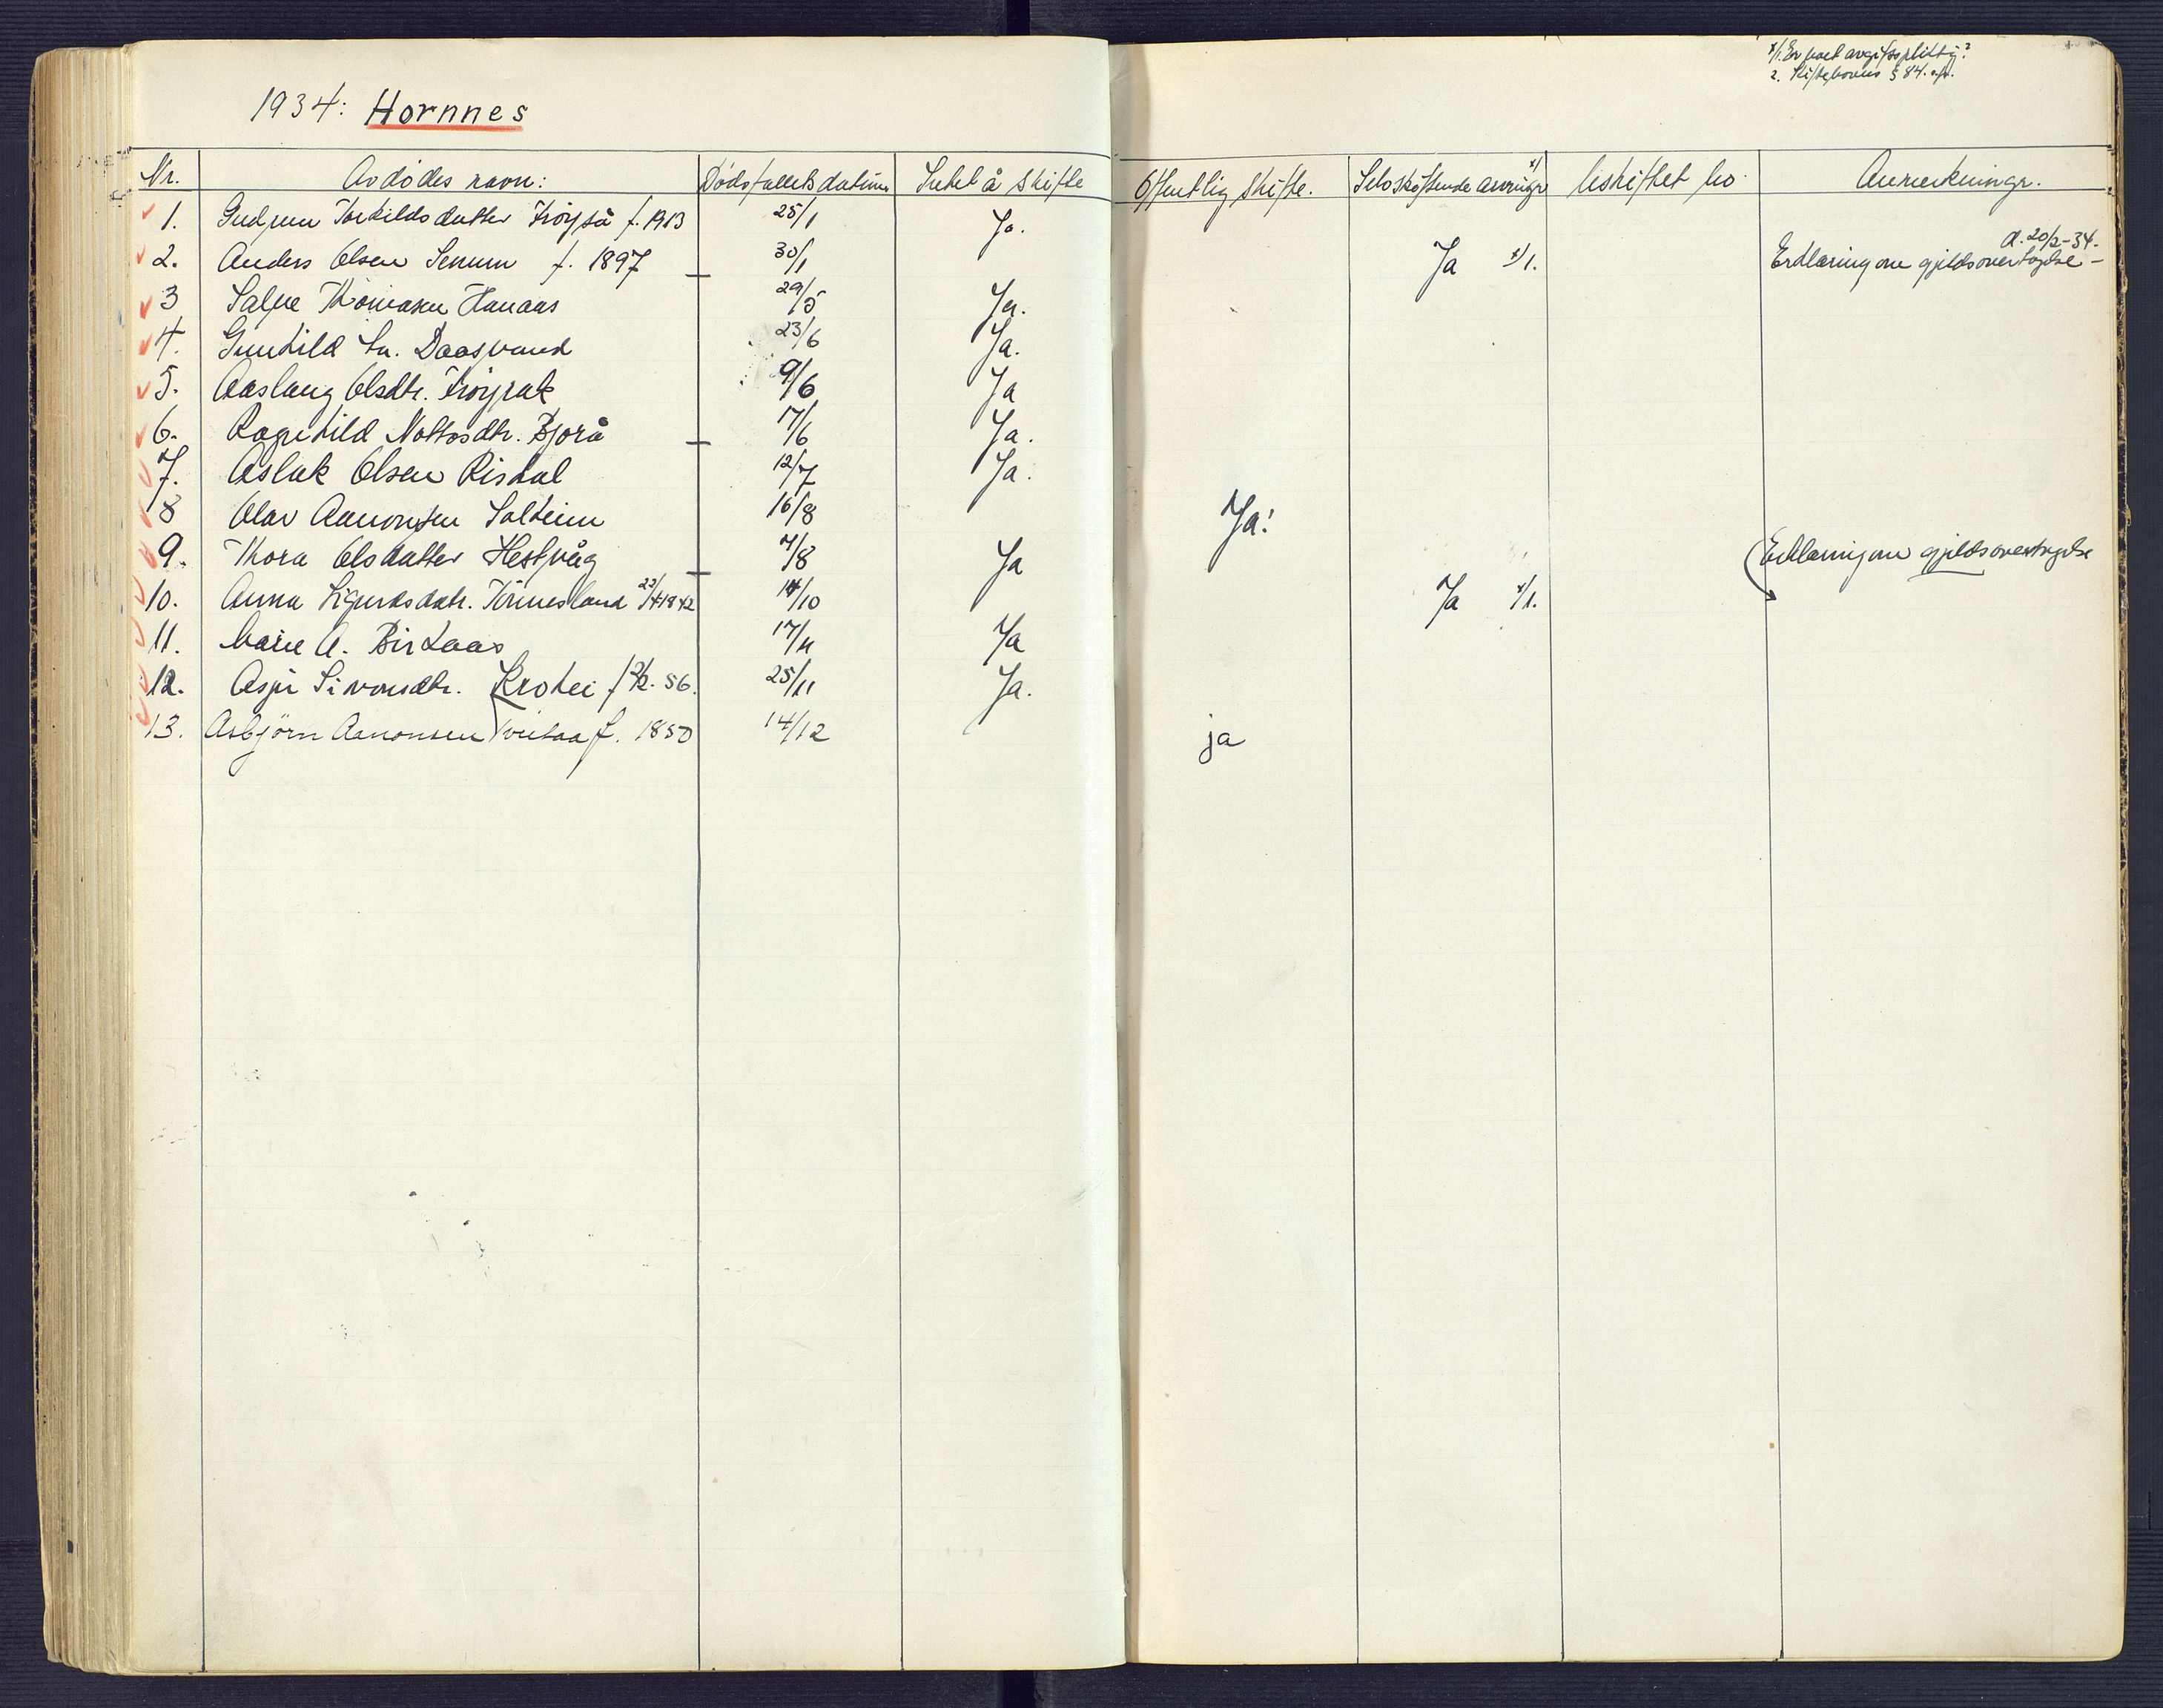 x/1. Er boet avgiftspliktig?
2. Skiftelovens § 84.
1934: Hornnes
Nr. Avdödes navn: Dödsfallets datum Intet å skifte Offentlig skifte. Selvskiftende arvinger x/ Uskiftet bo Anmerkninger.
1. Gudrun Torkildsdatter Fröyså f. 1913 25/1 Ja.
d. 20/2-34.
2. Anders Olsen Senum f. 1897 30/1 Ja x/1. Erklæring om gjeldsovertagelse -
3 Salve Thomasen Hanaas 29/5 Ja.
4. Gunhild Daasvand 23/6 Ja.
5. Aaslaug Olsdtr. Fröyrak 9/6 Ja
6. Ragnhild Nottosdtr. Bjorå 17/6 Ja.
7. Aslak Olsen Risdal 12/7 Ja.
8 Olav Aanonsen 16/8 Ja!
9. Thora Olsdatter Hestvåg 7/8 Ja (Erklæring om gjeldsovertagelse
10. Anna Sigurdsdatr. Tönnesland 22/4 1842 14/10 Ja x/1.
11. Marie A. Birkaas 17/11 Ja
12. Simonsdtr. Krohei f. 56. 25/11 Ja.
13. Asbjörn Aanonsen f. 1850 14/12 ja